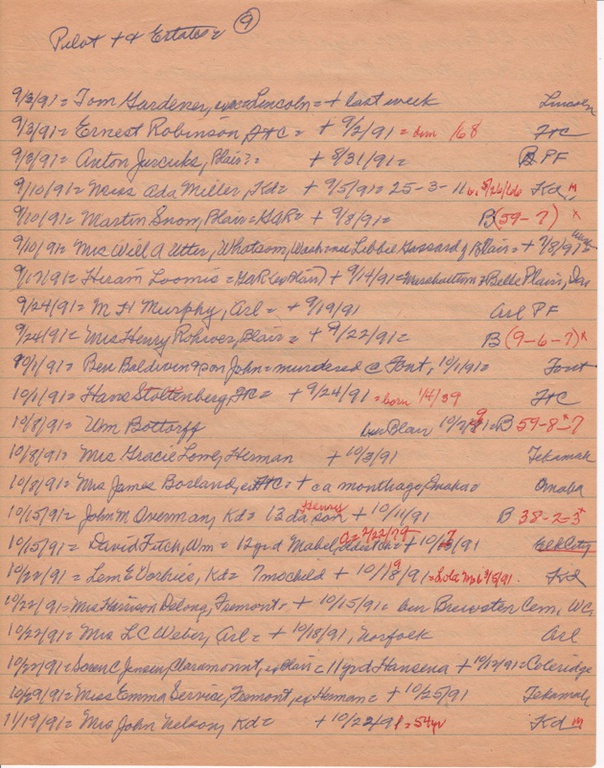 Pilot + & Estates = 9
9/3/91 = Tom Gardener, ex = Lincoln = + last week Lincoln
9/3/91 = Ernest Robinson, FtC = + 9/2/91 = born /68 FtC
9/3/91 = Anton Jurcuks, Blair? = + 8/31/91 = B PF
9/10/91 = Miss Ada Miller, Kd = + 9/5/91 = 25-3-11 b. 5/26/66 Kd, m
9/10/91 = Martin Snow, Blair = GAR = + 9/8/91 = B (59-7) x
9/10/91 = Mrs Will A Utter, Whatcom, Wash = nee Libbie Gassard of Blair = + 7/8/91 = Wash
9/17/91 = Hiram Loomis = GAR (ex Blair) + 9/14/91 = Marshalltown = Belle Plain,
9/24/91 = M H Murphy, Arl = + 9/19/91 Arl PF
9/24/91 = Mrs Henry Rohwer, Blair = + 9/22/91 = B (9-6-7) x
10/1/91 = Ben Baldwin & son John = murdered @ Font, 10/1/91 = Font
10/1/91 = Hans Stoltenberg, FtC = + 9/24/91 = born 1/4/39 FtC
10/8/91 = Wm Bottorff bur Blair 10/2/91 = B 59-8-7 x
10/8/91 = Mrs Gracie Lowe, Herman + 10/3/91 Tekamah
10/8/91 = Mrs James Borland, ex FtC = + ca month ago, Omaha = Omaha
10/15/91 = John M Overman, Kd = 12 da son Henry + 10/11/91 B 38-2-3 x
10/15/91 = David Fitch, Wm = 12 yr d Mabel, + 10/ /91 Elk City
10/22/91 = Lem E Vorhies, Kd = 7mo child + 10/18/91 = Lola M, b. 3/5/91. Kd
10/22/91 = Mrs Harrison Delong, Fremont = + 10/15/91 = bur Brewster Cem, WC
10/22/91 = Mrs L C Weber, Arl = + 10/18/91, Norfolk Arl
10/22/91 = Soren C Jensen, Claramount, ex Blair = 11 yr d Hansena + 10/13/91 = Coleridge
10/29/91 = Miss Emma Service, Fremont, ex Herman = + 10/25/91 Tekamah
11/19/91 = Mrs John Nelson, Kd = + 10/22/91 = 54yr Kd m